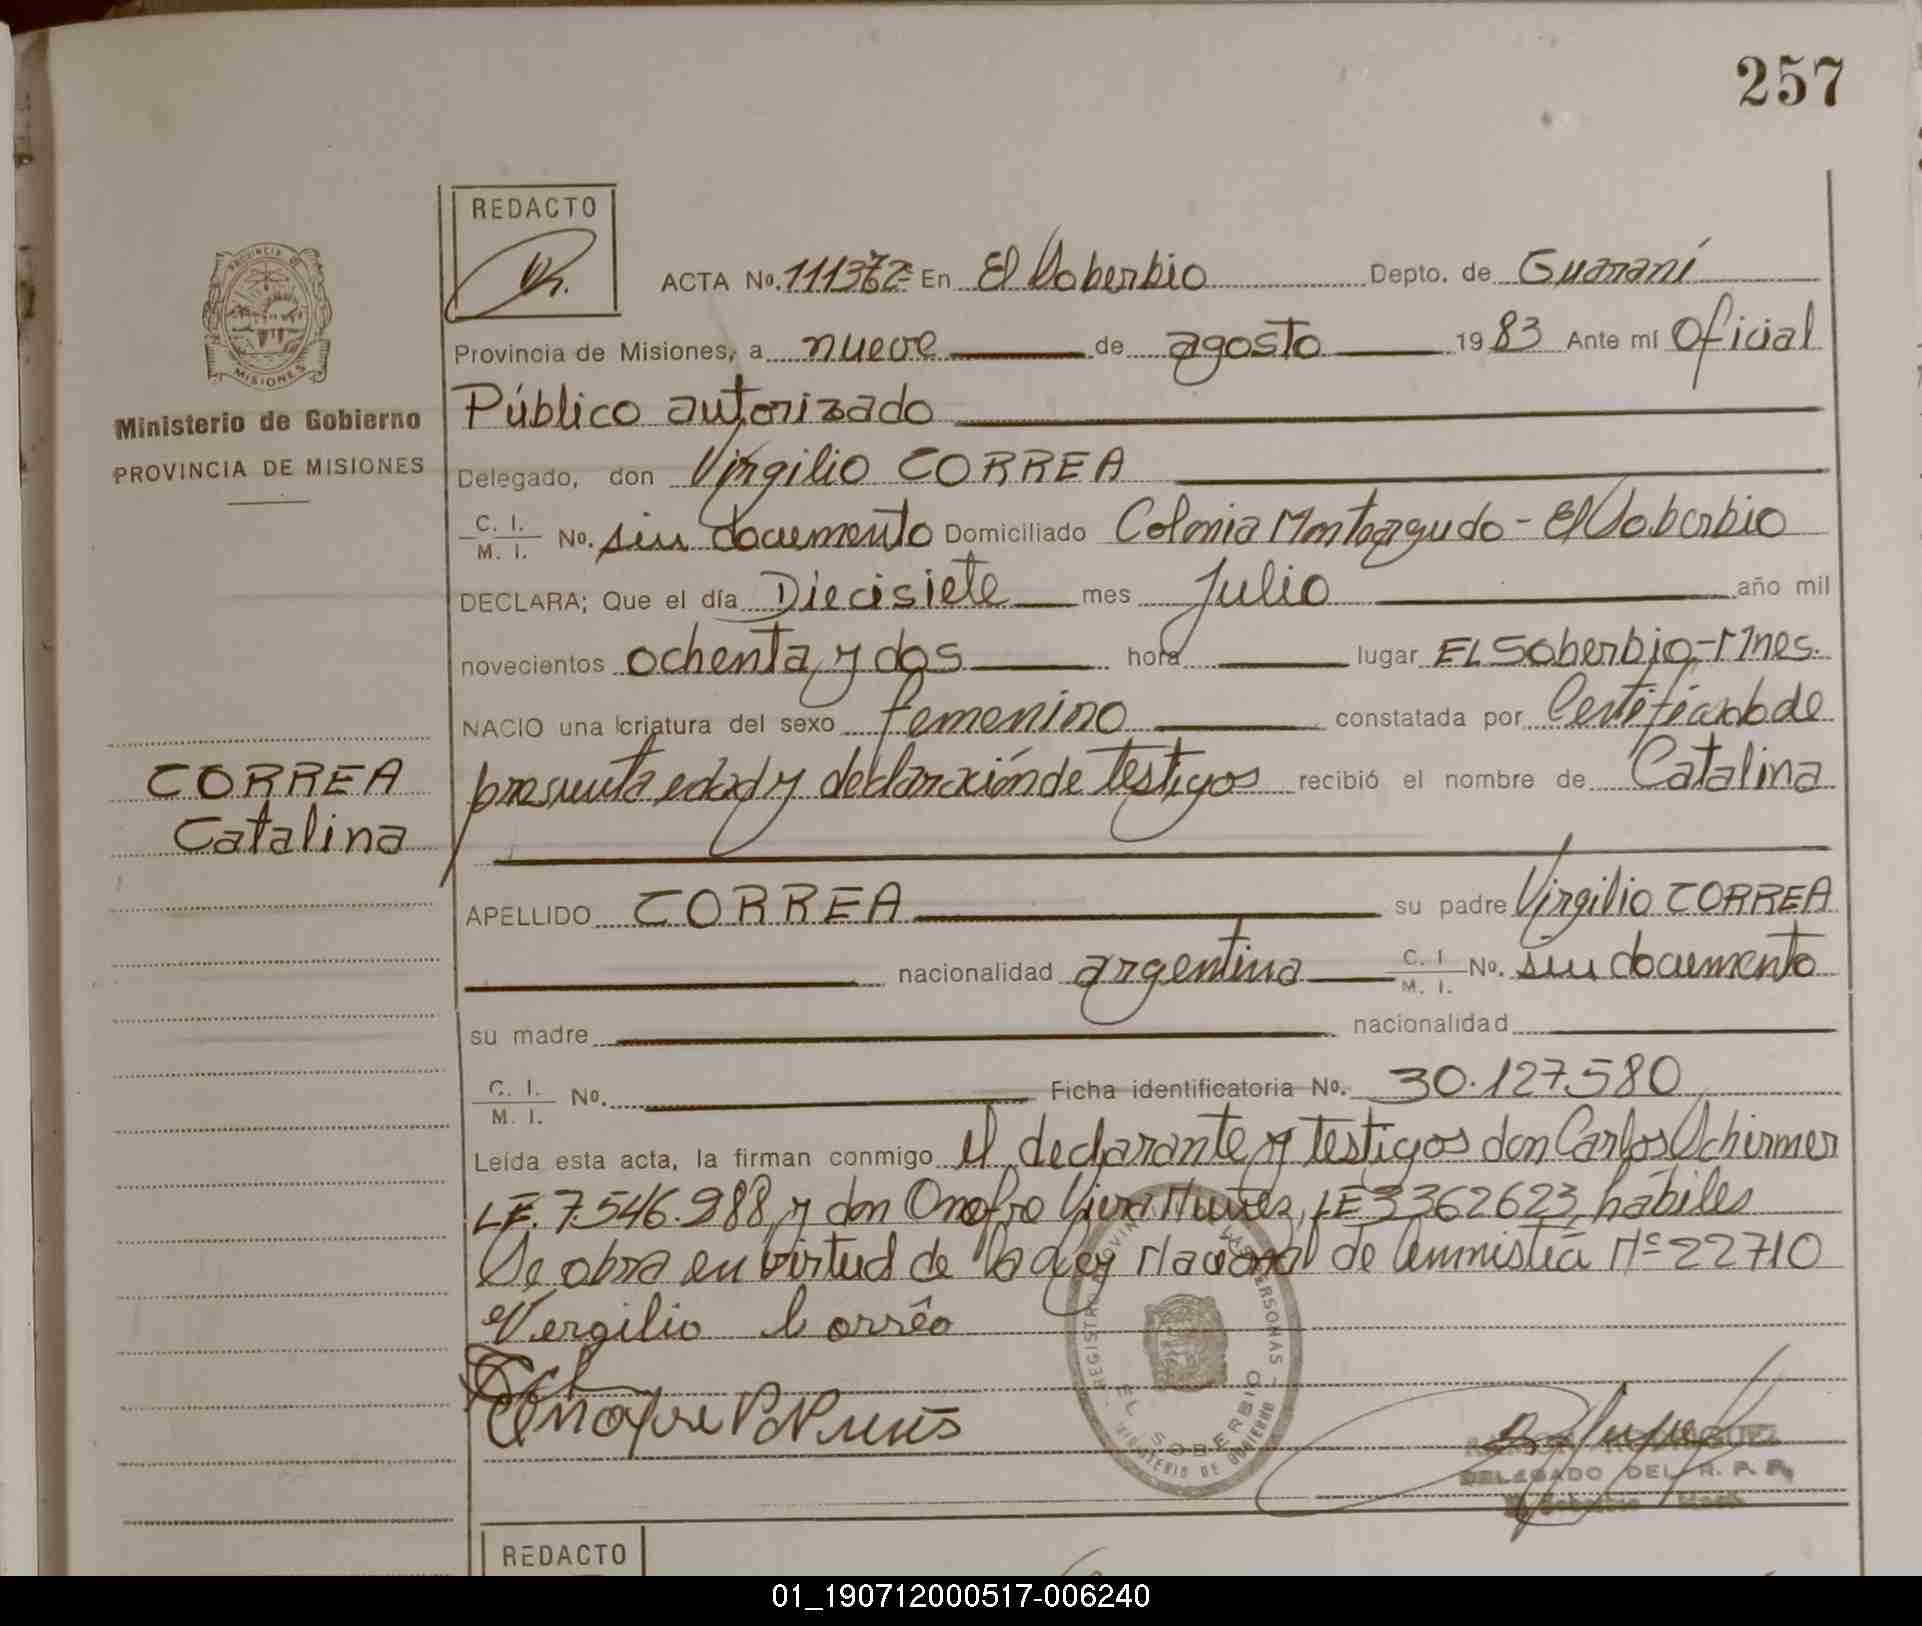 257
REDACTO
ACTA No. 111372 En El Soberbio Depto. de Guaraní
Provincia de Misiones, a nueve de agosto 1983 Ante mí Oficial
Público autorizado
Delegado, don Virgilio CORREA
C. I. / M. I. No. sin documento Domiciliado Colonia Monteagudo - El Soberbio
DECLARA; Que el día Diecisiete mes Julio año mil
novecientos ochenta y dos hora lugar EL Soberbio-Mnes.
NACIO una criatura del sexo femenino constatada por Certificado de
presunta edad y declaración de testigos recibió el nombre de Catalina
APELLIDO CORREA su padre Virgilio CORREA
nacionalidad argentina C. I. / M. I. No. sin documento
su madre nacionalidad
C. I. / M. I. No. Ficha identificatoria No. 30.127.580
Leída esta acta, la firman conmigo el declarante y testigos don Carlos Schirmer
LE. 7.546.988, y don Onofre Viera Nuñez, LE 3362623, hábiles
Se obra en virtud de la Ley Nacional de Amnistía Nº 22710
Vergilio Corrêa
PROVINCIA DE
MISIONES
Ministerio de Gobierno
PROVINCIA DE MISIONES
CORREA
Catalina
EL SOBERBIO
MINISTERIO DE GOBIERNO
DELEGADO DEL R. P. P.
REDACTO
01_190712000517-006240